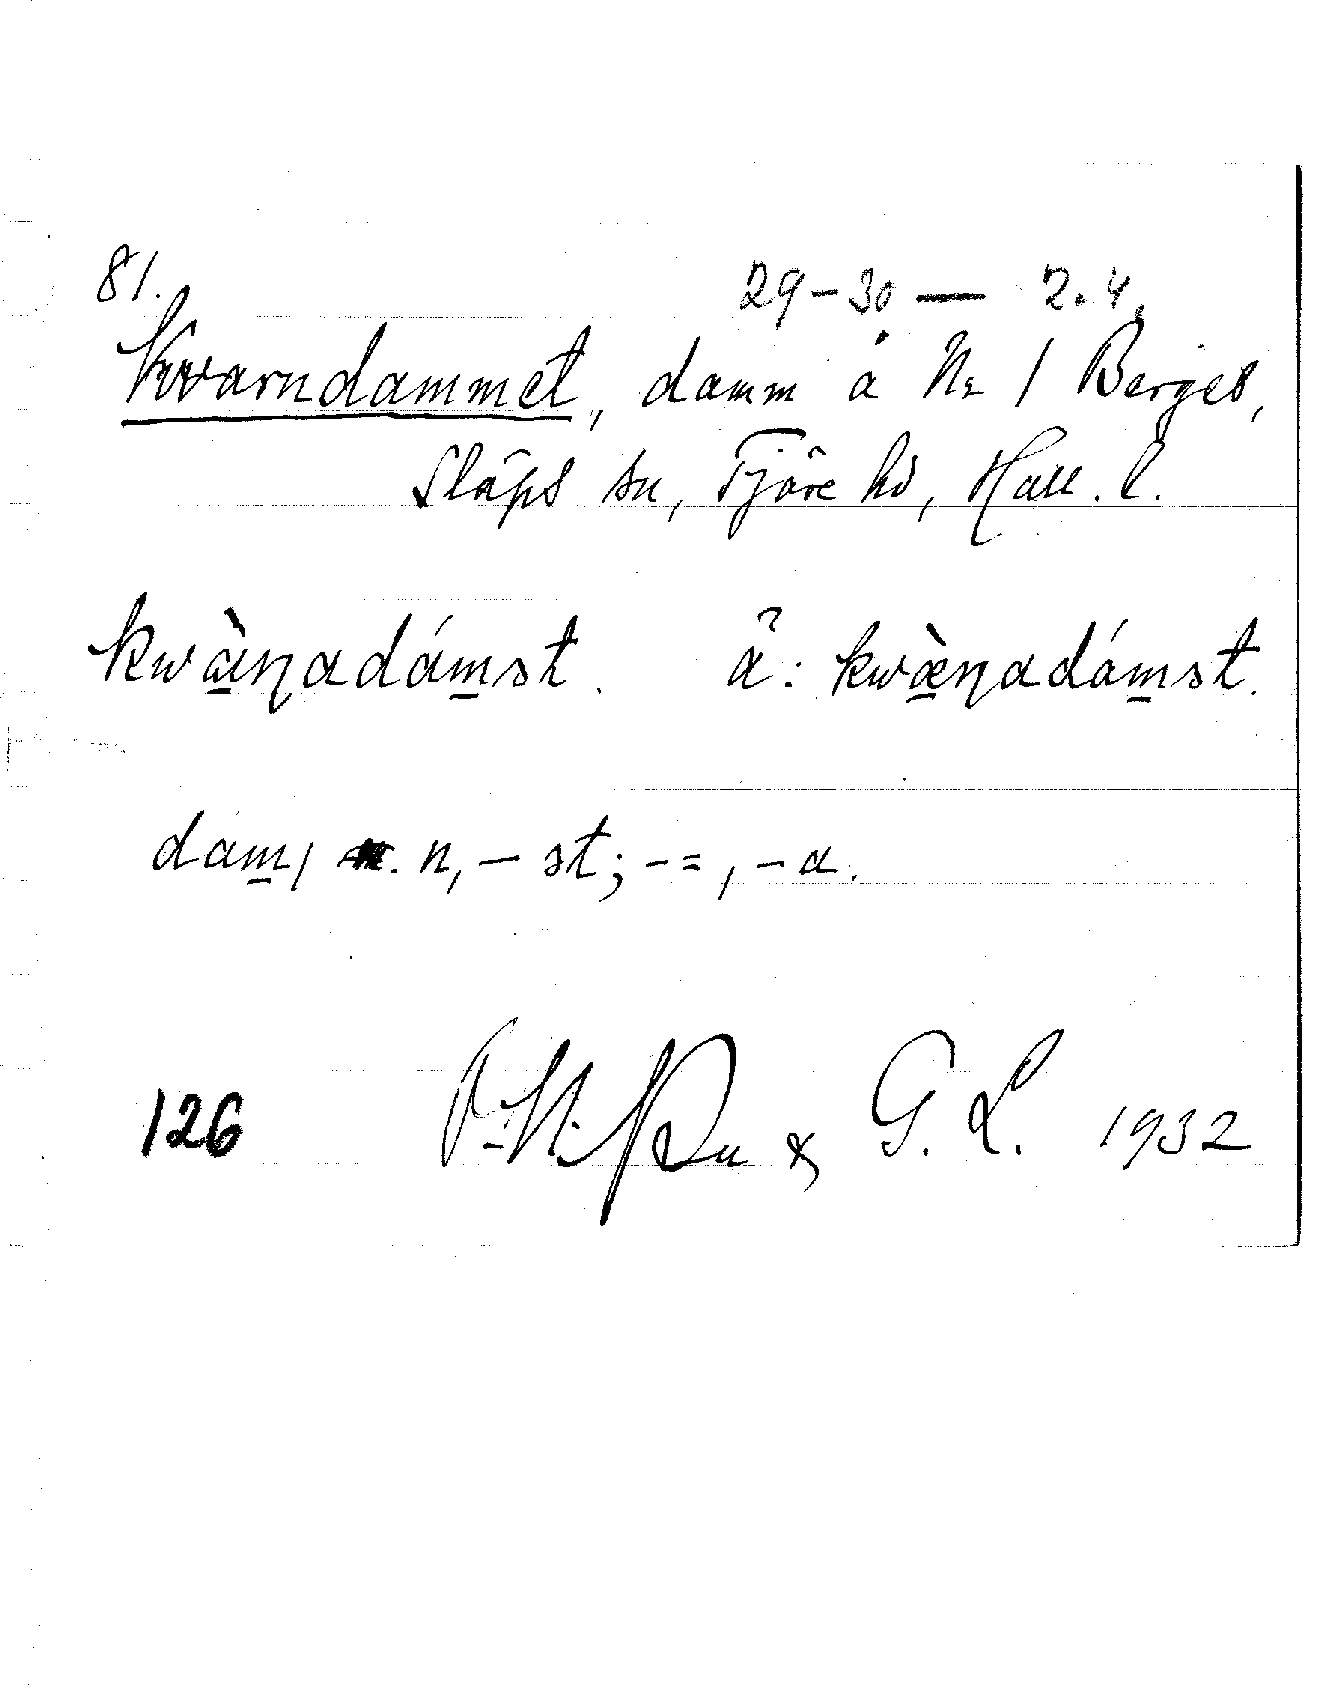 81.
29-30 — 2.4.
Kvarndammet, damm å Nr 1 Berget,
Släps sn, Fjäre hd, Hall. l.
kwàꞃadámst. ä: kwæ̀ꞃadámst.
dam, n, – st; -=, – a.
126 & G. L. 1932